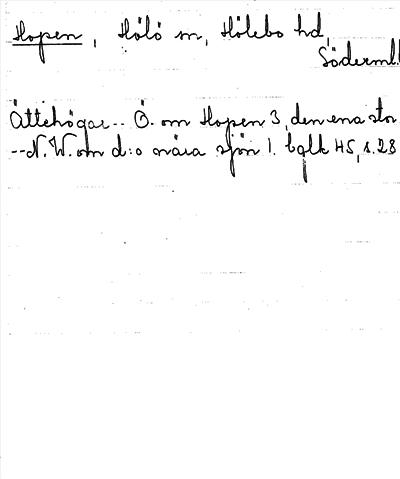 Hopen, Hölö sn, Hölebo hd,
Söderml.
Ättehögar-- Ö. om Hopen 3, den ena stor
--N.W. om d:o nära sjön 1. bglk 45, s. 28